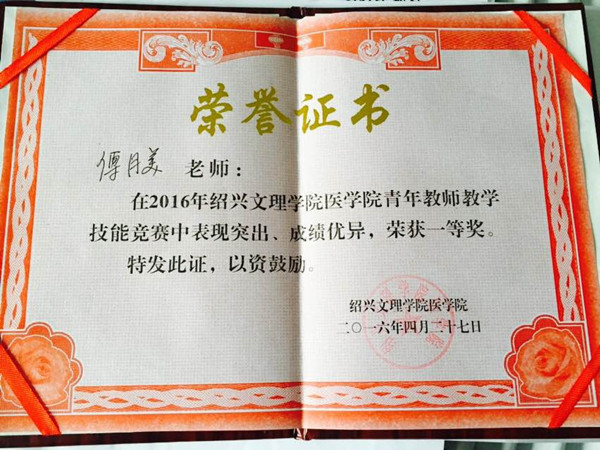 荣誉证书
傅月美 老师：
在2016年绍兴文理学院医学院青年教师教学
技能竞赛中表现突出、成绩优异，荣获一等奖。
特发此证，以资鼓励。
绍兴文理学院医学院
二〇一六年四月二十七日